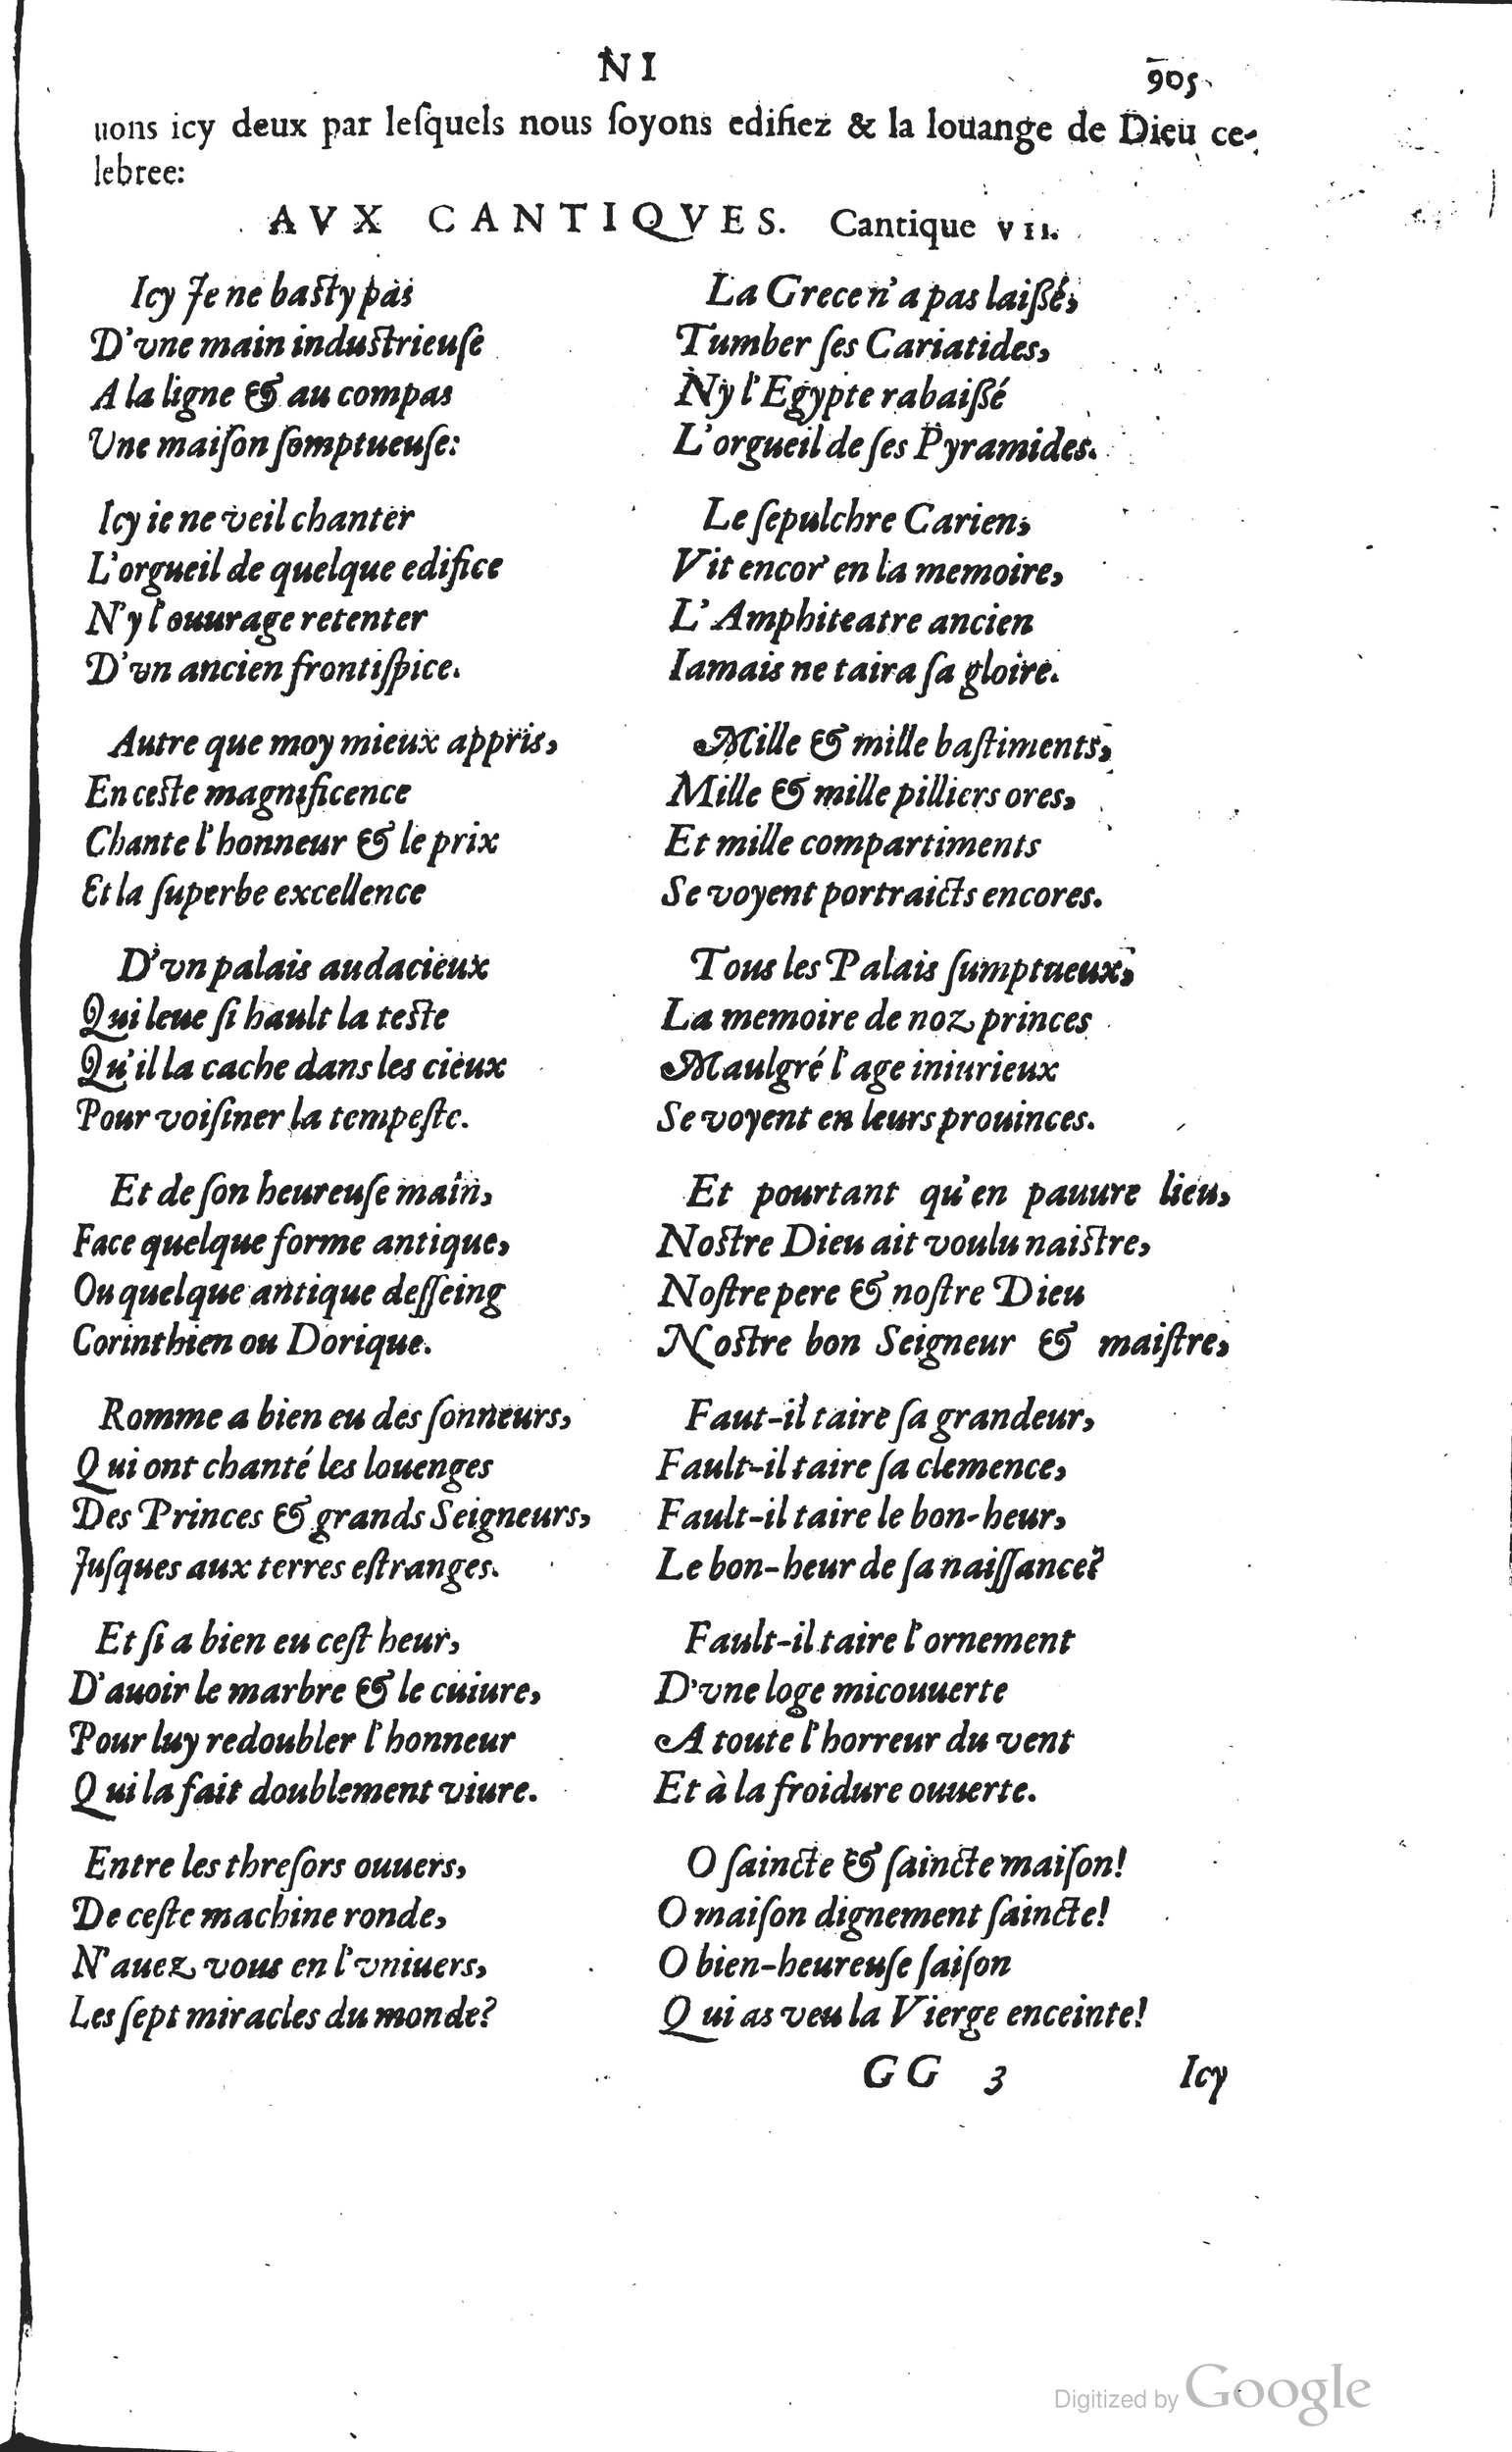 NI
905
uons icy deux par leſquels nous ſoyons edifiez & la louange de Dieu ce-
lebree:
AVX CANTIQVES. Cantique VII.
Icy Je ne baſty pas
D'vne main induſtrieuſe
A la ligne & au compas
Une maiſon ſomptueuſe:
Icy ie ne veil chanter
L'orgueil de quelque edifice
N'y l'ouurage retenter
D'vn ancien frontiſpice.
Autre que moy mieux appris,
En ceſte magnificence
Chante l'honneur & le prix
Et la ſuperbe excellence
D'vn palais audacieux
Qui leue ſi hault la teſte
Qu'il la cache dans les cieux
Pour voiſiner la tempeſte.
Et de ſon heureuſe main,
Face quelque forme antique,
Ou quelque antique deſſeing
Corinthien ou Dorique.
Romme a bien eu des ſonneurs,
Qui ont chanté les louenges
Des Princes & grands Seigneurs,
Juſques aux terres eſtranges.
Et ſi a bien eu ceſt heur,
D'auoir le marbre & le cuiure,
Pour luy redoubler l'honneur
Qui la fait doublement viure.
Entre les threſors ouuers,
De ceſte machine ronde,
N'auez vous en l'vniuers,
Les ſept miracles du monde?
La Grece n'a pas laißé,
Tumber ſes Cariatides,
Ny l'Egypte rabaißé
L'orgueil de ſes Pyramides.
Le ſepulchre Carien,
Vit encor' en la memoire,
L'Amphiteatre ancien
Iamais ne taira ſa gloire.
Mille & mille baſtiments,
Mille & mille pilliers ores,
Et mille compartiments
Se voyent portraicts encores.
Tous les Palais ſumptueux,
La memoire de noz princes
Maulgré l'age iniurieux
Se voyent en leurs prouinces.
Et pourtant qu'en pauure lieu,
Noſtre Dieu ait voulu naiſtre,
Noſtre pere & noſtre Dieu
Noſtre bon Seigneur & maiſtre,
Faut-il taire ſa grandeur,
Fault-il taire ſa clemence,
Fault-il taire le bon-heur,
Le bon-heur de ſa naiſſance?
Fault-il taire l'ornement
D'vne loge micouuerte
A toute l'horreur du vent
Et à la froidure ouuerte.
O ſaincte & ſaincte maiſon!
O maiſon dignement ſaincte!
O bien-heureuſe ſaiſon
Qui as veu la Vierge enceinte!
GG 3 Icy
Digitized by Google